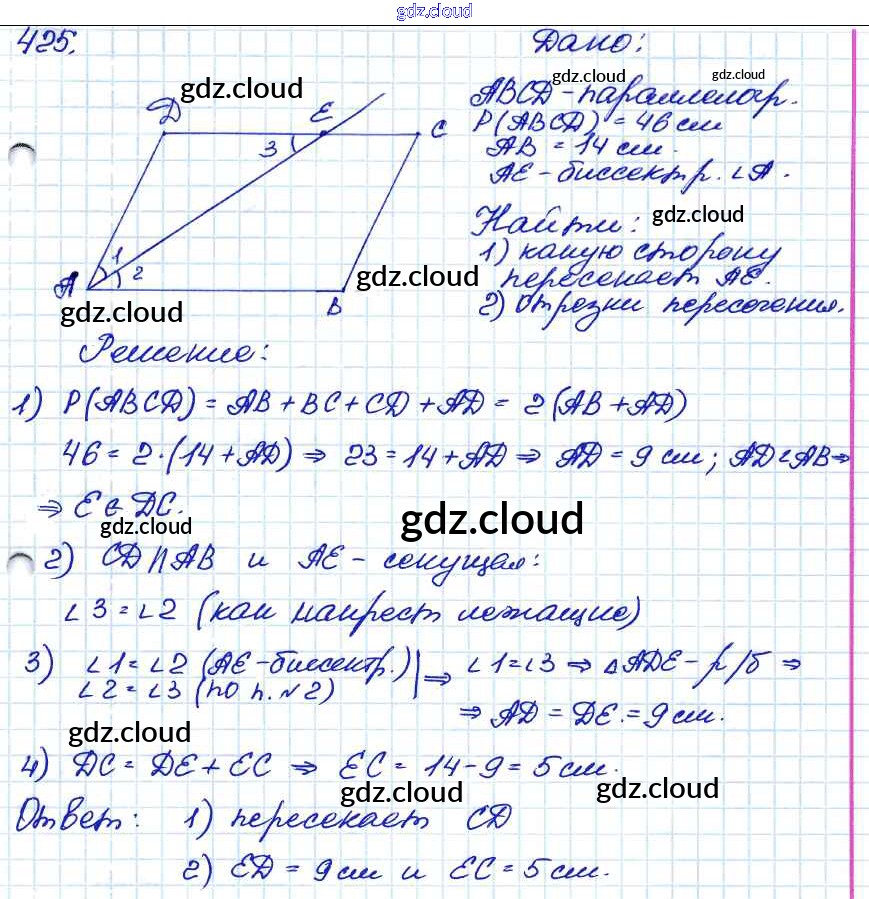 gdz.cloud
425.
Дано:
ABCD - параллелогр.
P(ABCD) = 46 см
AB = 14 см.
AE - биссектр. ∠A.
Найти:
1) какую сторону
пересекает AE.
2) Отрезки пересечения.
D E C
3
1
2
A B
gdz.cloud
gdz.cloud
gdz.cloud
gdz.cloud
gdz.cloud
gdz.cloud
Решение:
1) P(ABCD) = AB + BC + CD + AD = 2(AB + AD)
46 = 2·(14 + AD) ⇒ 23 = 14 + AD ⇒ AD = 9 см; AD < AB ⇒
⇒ E ∈ DC.
gdz.cloud
gdz.cloud
2) CD ∥ AB и AE - секущая:
∠3 = ∠2 (как накрест лежащие)
3) ∠1 = ∠2 (AE - биссектр.) | ⇒ ∠1 = ∠3 ⇒ △ADE - р/б ⇒
∠2 = ∠3 (по п. №2)
⇒ AD = DE. = 9 см.
gdz.cloud
4) DC = DE + EC ⇒ EC = 14 - 9 = 5 см.
gdz.cloud
gdz.cloud
Ответ: 1) пересекает CD
2) ED = 9 см и EC = 5 см.